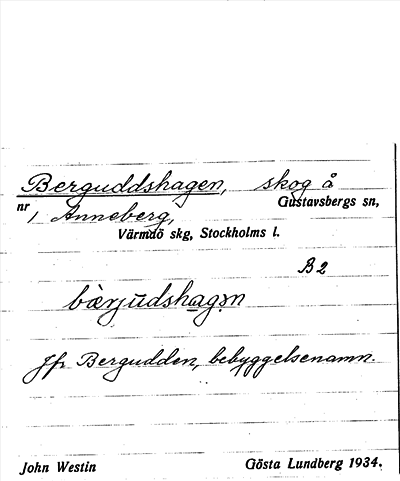 Berguddshagen, skog å
nr 1 Anneberg, Gustavsbergs sn,
Värmdö skg, Stockholms l.
B2
bàrjudshagən
Jfr Bergudden, bebyggelsenamn.
John Westin Gösta Lundberg 1934.